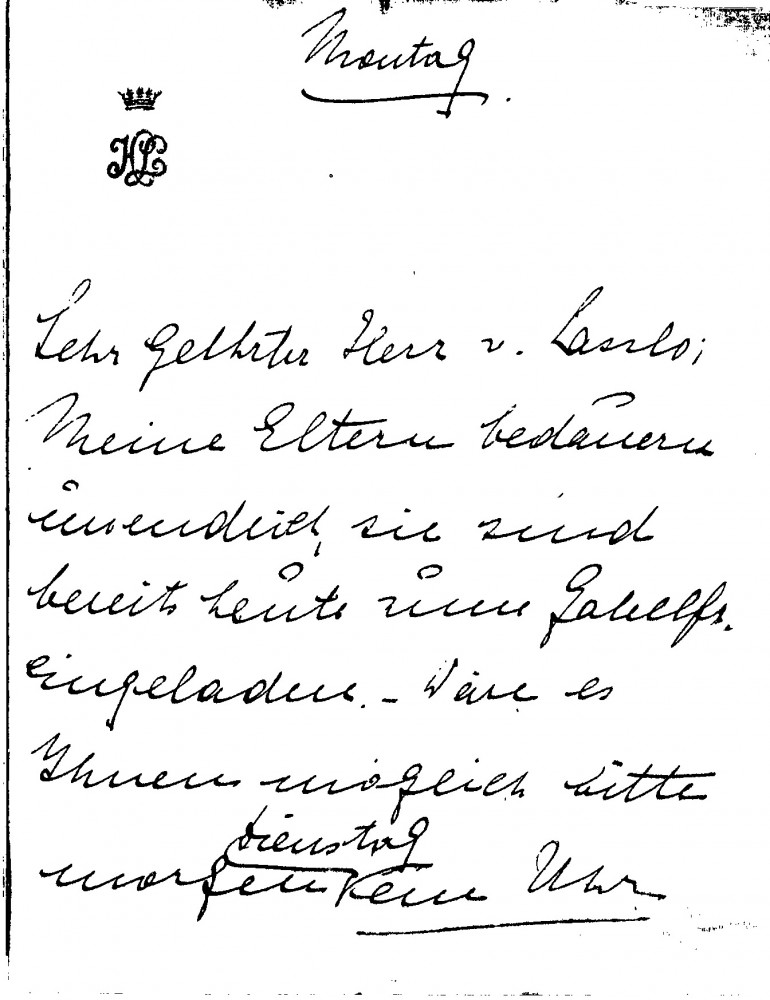 Montag.
HL
Sehr Geehrter Herr v. Laszlo;
Meine Eltern bedauern
unendlich, sie sind
bereits heute zum Gabelfr.
eingeladen. – Wäre es
Ihnen möglich bitte
Dienstag
morgen ein Uhr